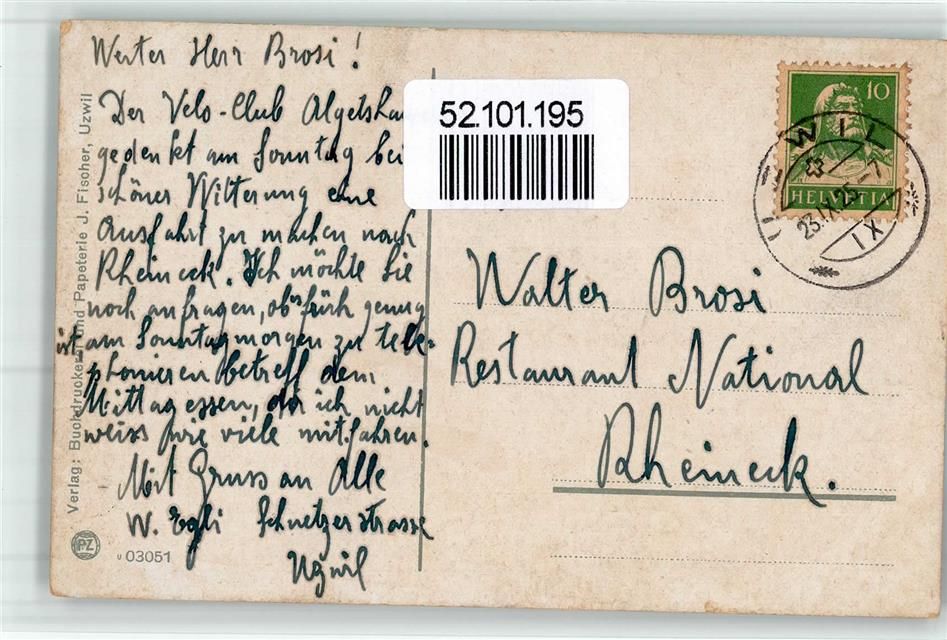 Werter Herr Brosi!
Der Velo-Club Algetshau
gedenkt am Sonntag bei
schöner Witterung eine
Ausfahrt zu machen nach
Rheineck. Ich möchte Sie
noch anfragen, ob's früh genug
ist am Sonntagmorgen zu tele-
phonieren betreff dem
Mittagessen, da ich nicht
weiss wie viele mitfahren.
Mit Gruss an Alle
W. Egli Schnetzerstrasse
Uzwil
Verlag: Buchdruckerei und Papeterie J. Fischer, Uzwil
PZ
U 03051
52.101.195
10
HELVETIA
UZWIL
23.IX.25
IX
Walter Brosi
Restaurant National
Rheineck.